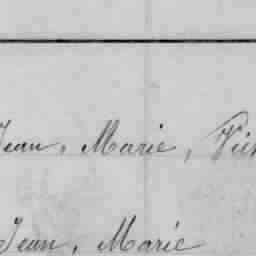 Jean, Marie,
Jean, Marie